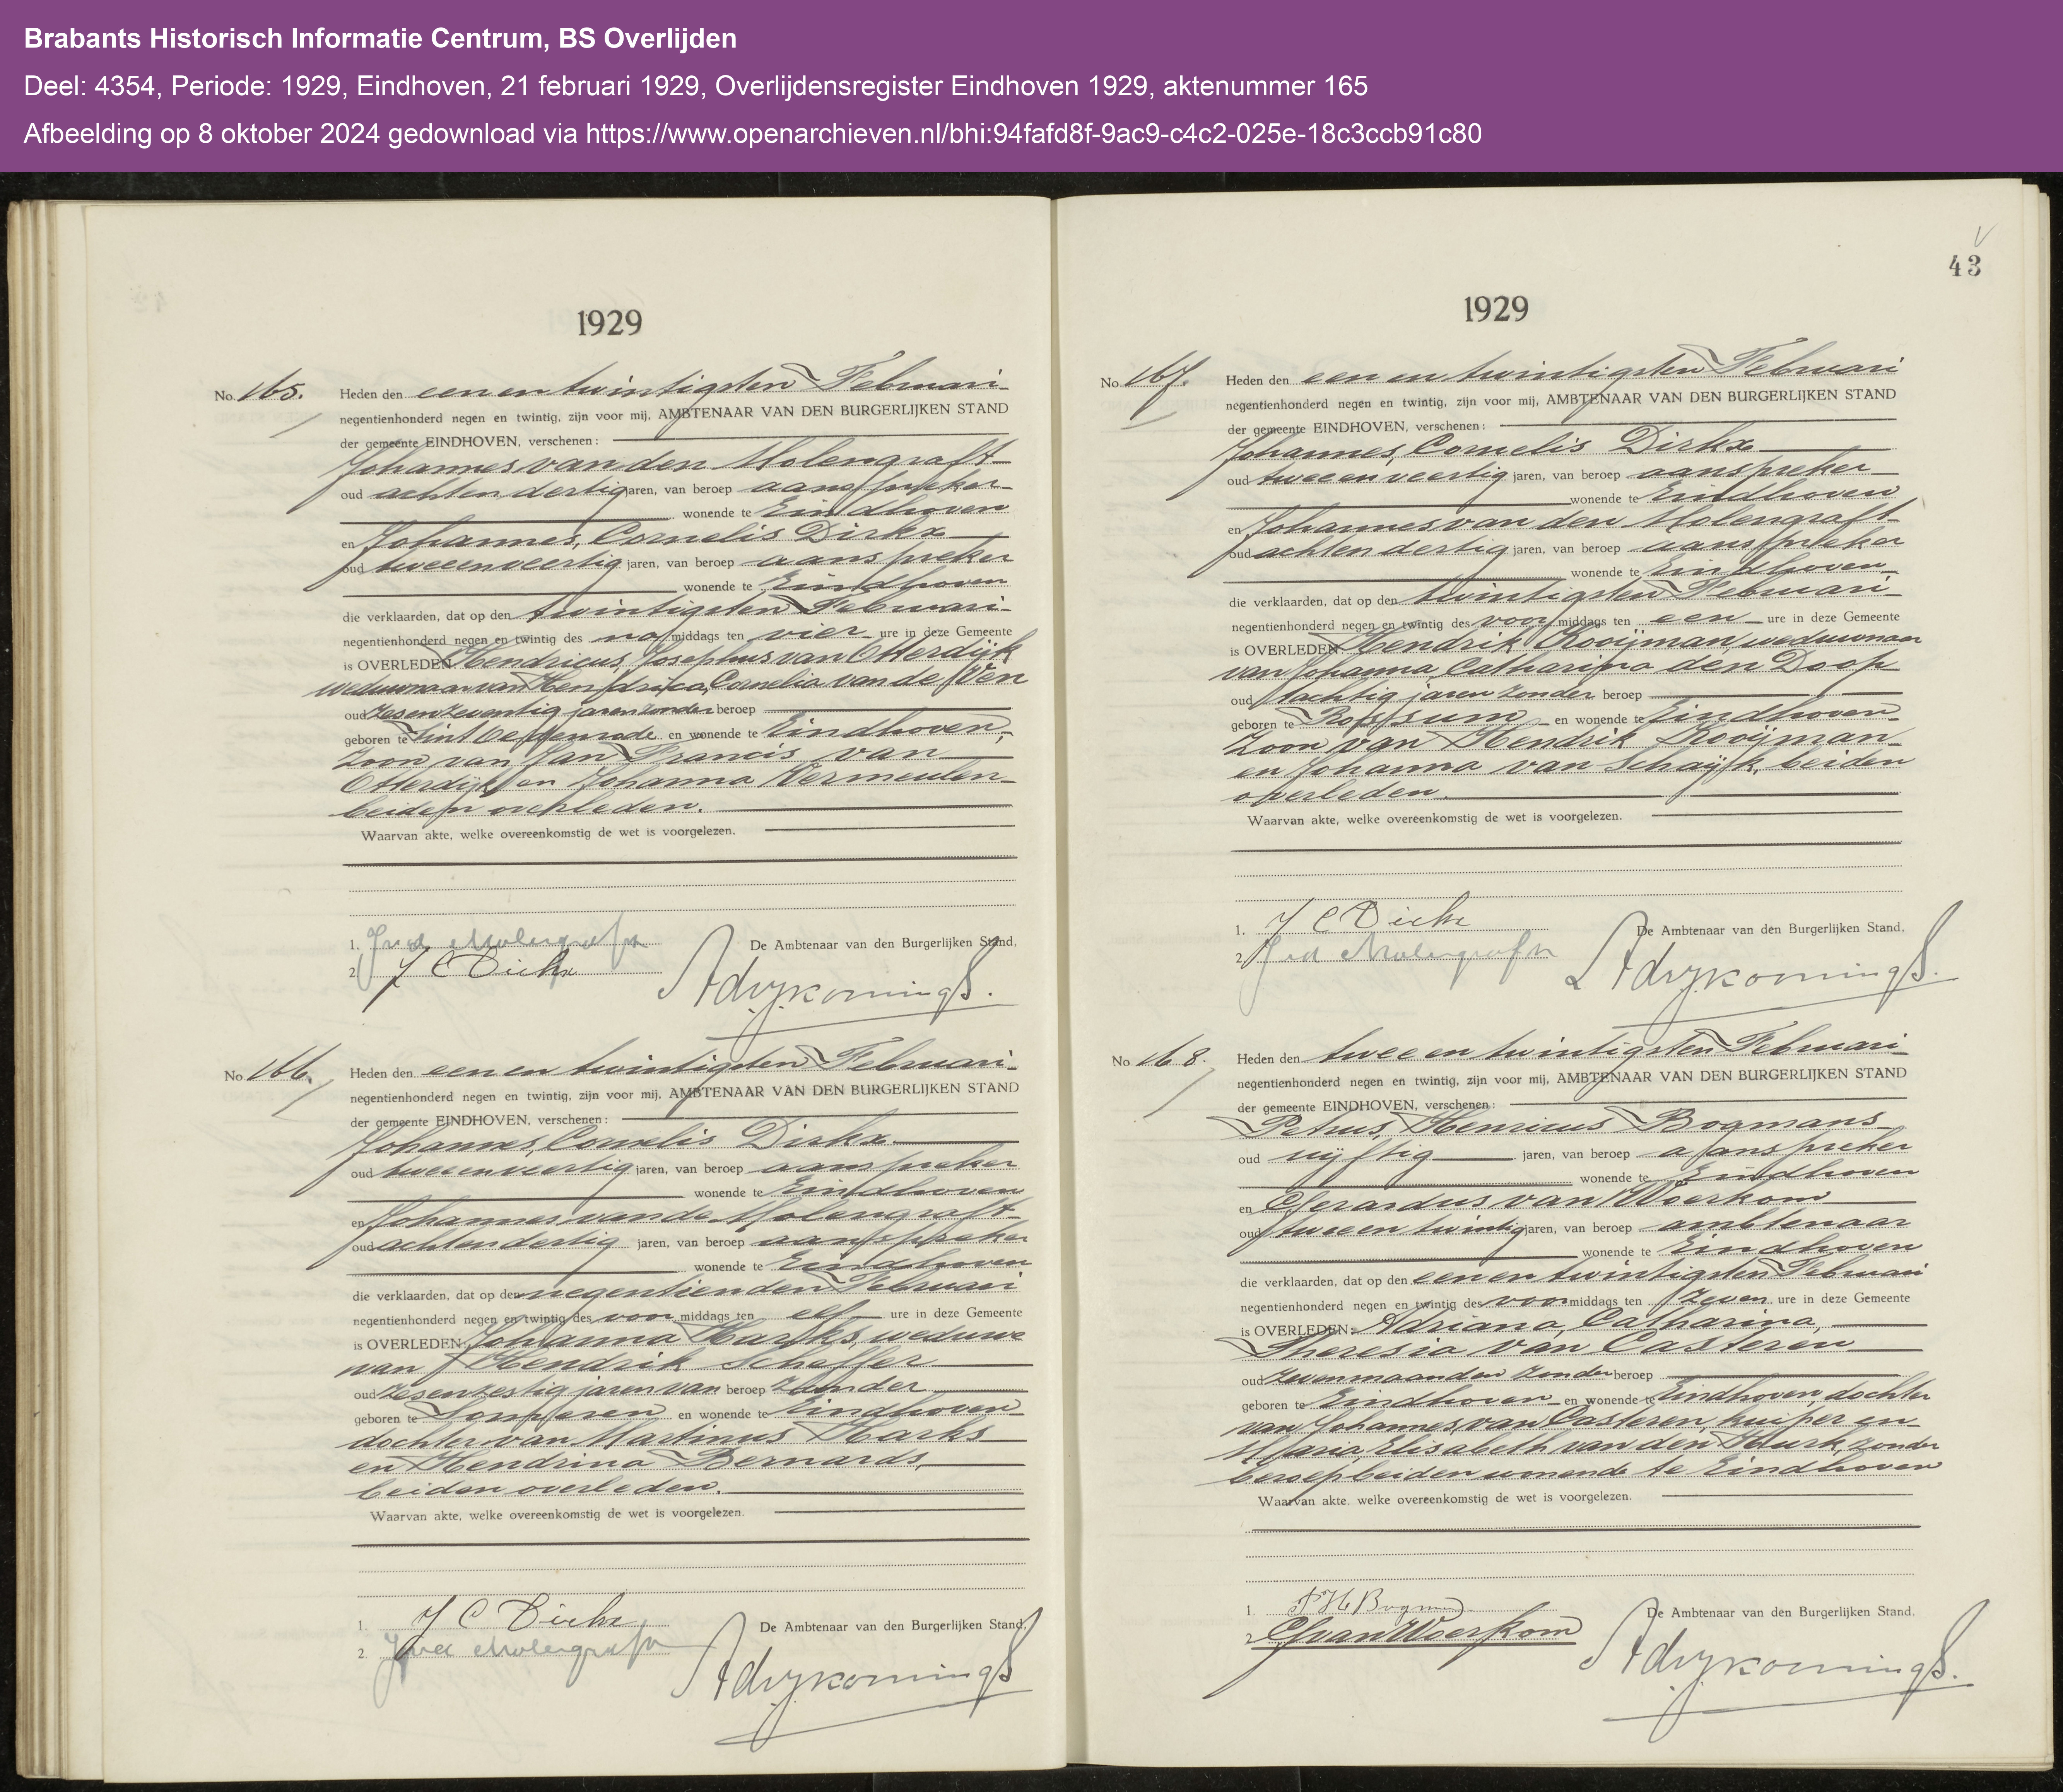 Brabants Historisch Informatie Centrum, BS Overlijden
Deel: 4354, Periode: 1929, Eindhoven, 21 februari 1929, Overlijdensregister Eindhoven 1929, aktenummer 165
Afbeelding op 8 oktober 2024 gedownload via https://www.openarchieven.nl/bhi:94fafd8f-9ac9-c4c2-025e-18c3ccb91c80
1929
No. 165. Heden den eenentwintigsten Februari
negentienhonderd negen en twintig, zijn voor mij, AMBTENAAR VAN DEN BURGERLIJKEN STAND
der gemeente EINDHOVEN, verschenen:
Johannes van den Molengraft
oud achtendertig jaren, van beroep aanspreker
wonende te Eindhoven
en Johannes, Cornelis Dirkx
oud tweeenveertig jaren, van beroep aanspreker
wonende te Eindhoven
die verklaarden, dat op den twintigsten Februari
negentienhonderd negen en twintig des na middags ten vier ure in deze Gemeente
is OVERLEDEN Hendricus, Josephus van Otterdijk
weduwnaar van Hendrica, Cornelia van de Ven
oud zesenzeventig jaren zonder beroep
geboren te Sint Oedenrode en wonende te Eindhoven,
zoon van Jan Francis van
Otterdijk en Johanna Vermeulen
beiden overleden.
Waarvan akte, welke overeenkomstig de wet is voorgelezen.
1. Jvd Molengraft
De Ambtenaar van den Burgerlijken Stand,
2. J C Dirkx
No 166. Heden den eenen twintigsten Februari
negentienhonderd negen en twintig, zijn voor mij, AMBTENAAR VAN DEN BURGERLIJKEN STAND
der gemeente EINDHOVEN, verschenen:
Johannes, Cornelis Dirkx
oud tweeenveertig jaren, van beroep aanspreker
wonende te Eindhoven
en Johannes vande Molengraft
oud achtendertig jaren, van beroep aanspreker
wonende te Eindhoven
die verklaarden, dat op den negentienden Februari
negentienhonderd negen en twintig des voor middags ten elf ure in deze Gemeente
is OVERLEDEN: Johanna Harks, weduwe
van Hendrik Schaffer
oud zesenzestig jaren van beroep zonder
geboren te en wonende te Eindhoven
dochter van Martinus Harks
en Hendrina Bernards,
beiden overleden.
Waarvan akte, welke overeenkomstig de wet is voorgelezen.
1. J C Dirkx
De Ambtenaar van den Burgerlijken Stand,
2. Jvd Molengraft
43
1929
No. 167. Heden den een en twintigsten Februari
negentienhonderd negen en twintig, zijn voor mij, AMBTENAAR VAN DEN BURGERLIJKEN STAND
der gemeente EINDHOVEN, verschenen:
Johannes, Cornelis Dirkx
oud tweeenveertig jaren, van beroep aanspreker
wonende te Eindhoven
en Johannes van den Molengraft
oud achtendertig jaren, van beroep aanspreker
wonende te Eindhoven
die verklaarden, dat op den twintigsten Februari
negentienhonderd negen en twintig des voor middags ten een ure in deze Gemeente
is OVERLEDEN Hendrik Kooijman, weduwnaar
van Johanna, Catharina den Doop
oud tachtig jaren zonder beroep
geboren te Rossum en wonende te Eindhoven
zoon van Hendrik Kooijman
en Johanna van Schaijk, beiden
overleden.
Waarvan akte, welke overeenkomstig de wet is voorgelezen.
1. J C Dirkx
De Ambtenaar van den Burgerlijken Stand.
2. Jvd Molengraft
No 168. Heden den twee en twintigsten Februari
negentienhonderd negen en twintig, zijn voor mij, AMBTENAAR VAN DEN BURGERLIJKEN STAND
der gemeente EINDHOVEN, verschenen:
Petrus, Henricus Bogmans
oud vijftig jaren, van beroep aanspreker
wonende te Eindhoven
en Gerardus van Woerkom
oud tweeentwintig jaren, van beroep ambtenaar
wonende te Eindhoven
die verklaarden, dat op den eenen twintigsten Februari
negentienhonderd negen en twintig des voor middags ten zeven ure in deze Gemeente
is OVERLEDEN: Adriana, Catharina,
Theresia van Casteren
oud zeven maanden zonder beroep
geboren te Eindhoven en wonende te Eindhoven, dochter
van Johannes van Casteren, kuiper en
Maria, Elisabeth van den Hurk, zonder
beroep beiden wonende te Eindhoven
Waarvan akte. welke overeenkomstig de wet is voorgelezen.
1. P H Bogmans
De Ambtenaar van den Burgerlijken Stand.
2. G van Woerkom